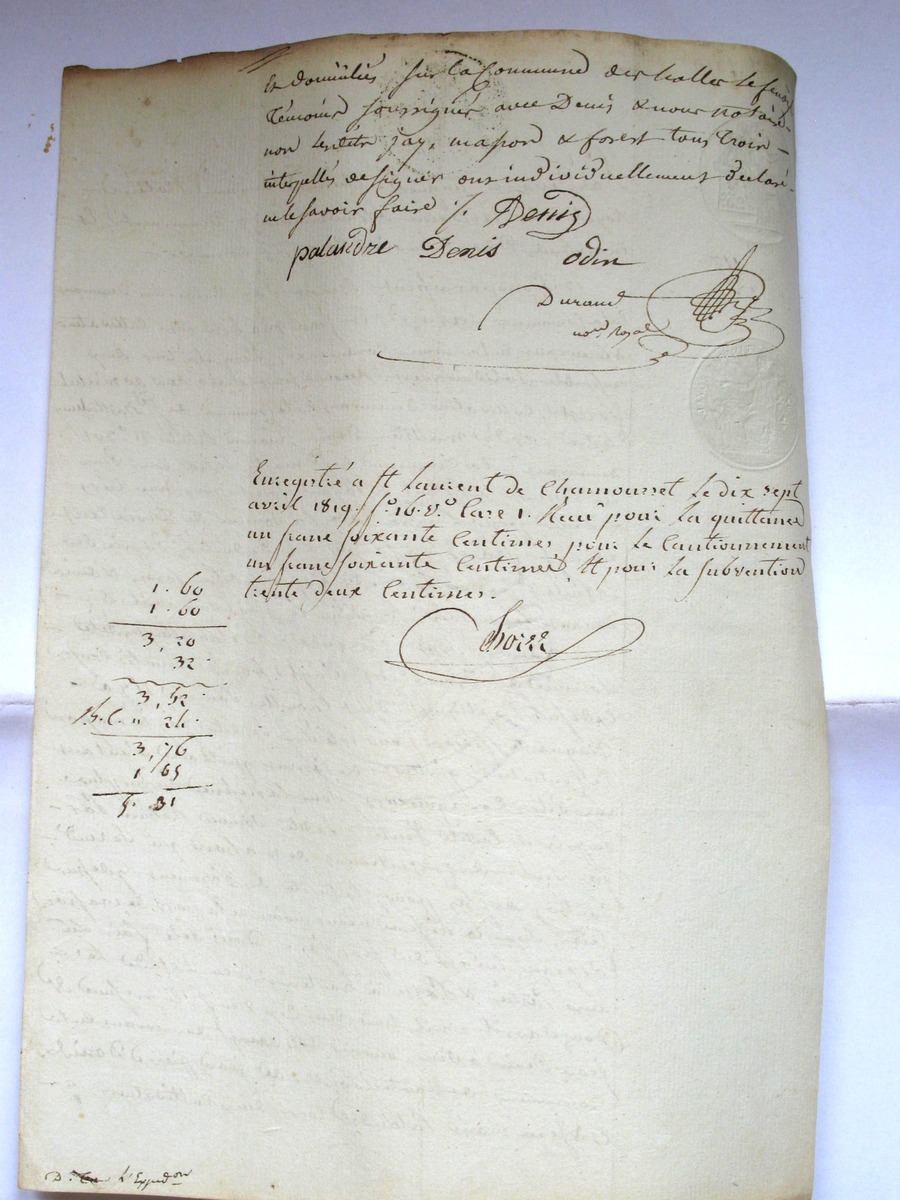 et domiciliés sur la Commune des halles le fenoy
témoins soussignés avec Denis & nous notaire
non lesdits jay, mapon & forest tous trois
interpellés de signer ont individuellement déclaré
ne le savoir faire ⁒ Denis
palandre Denis odin
Durand
nore Royal
Enregistré a St Laurent de Chamousset le dix sept
avril 1819. fo. 16. Vo. Case 1. Recu pour la quittance
un franc soixante Centimes pour le Cautionnement
un franc soixante Centimes Et pour la subvention
trente deux Centimes.
1. 60
1. 60
3, 20
32
3, 52
24
3, 76
1, 55
5. 31